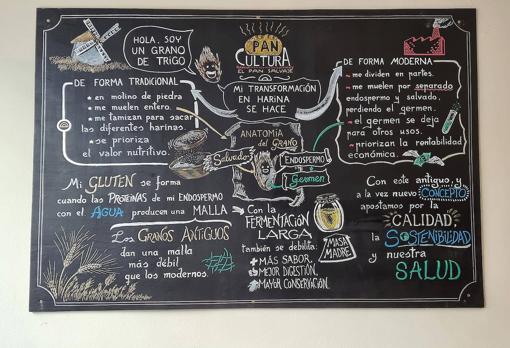 HOLA, SOY
UN GRANO
DE TRIGO
PAN
CULTURA
EL PAN SALVAJE
Mi TRANSFORMACIÓN
EN HARINA
SE HACE
DE FORMA TRADICIONAL
★ en molino de piedra
★ me muelen entero.
★ me tamizan para sacar
las diferentes harinas.
★ se prioriza
el valor nutritivo.
DE FORMA MODERNA
me dividen en partes.
me muelen por separado
endospermo y salvado,
perdiendo el germen.
el germen se deja
para otros usos.
priorizan la rentabilidad
económica.
ANATOMÍA
del GRANO
Salvado
ENDOSPERMO
Germen
Mi GLUTEN se forma
cuando las PROTEÍNAS de mi ENDOSPERMO
con el AGUA producen una MALLA
Los GRANOS ANTIGUOS
dan una malla
más débil
que los modernos.
Con la
FERMENTACIÓN
LARGA
también se debilita:
+ MÁS SABOR.
MEJOR DIGESTIÓN.
MAYOR CONSERVACIÓN.
MASA
MADRE
Con este antiguo, y
a la vez nuevo CONCEPTO
apostamos por la
CALIDAD
la SOSTENIBILIDAD
y nuestra
SALUD